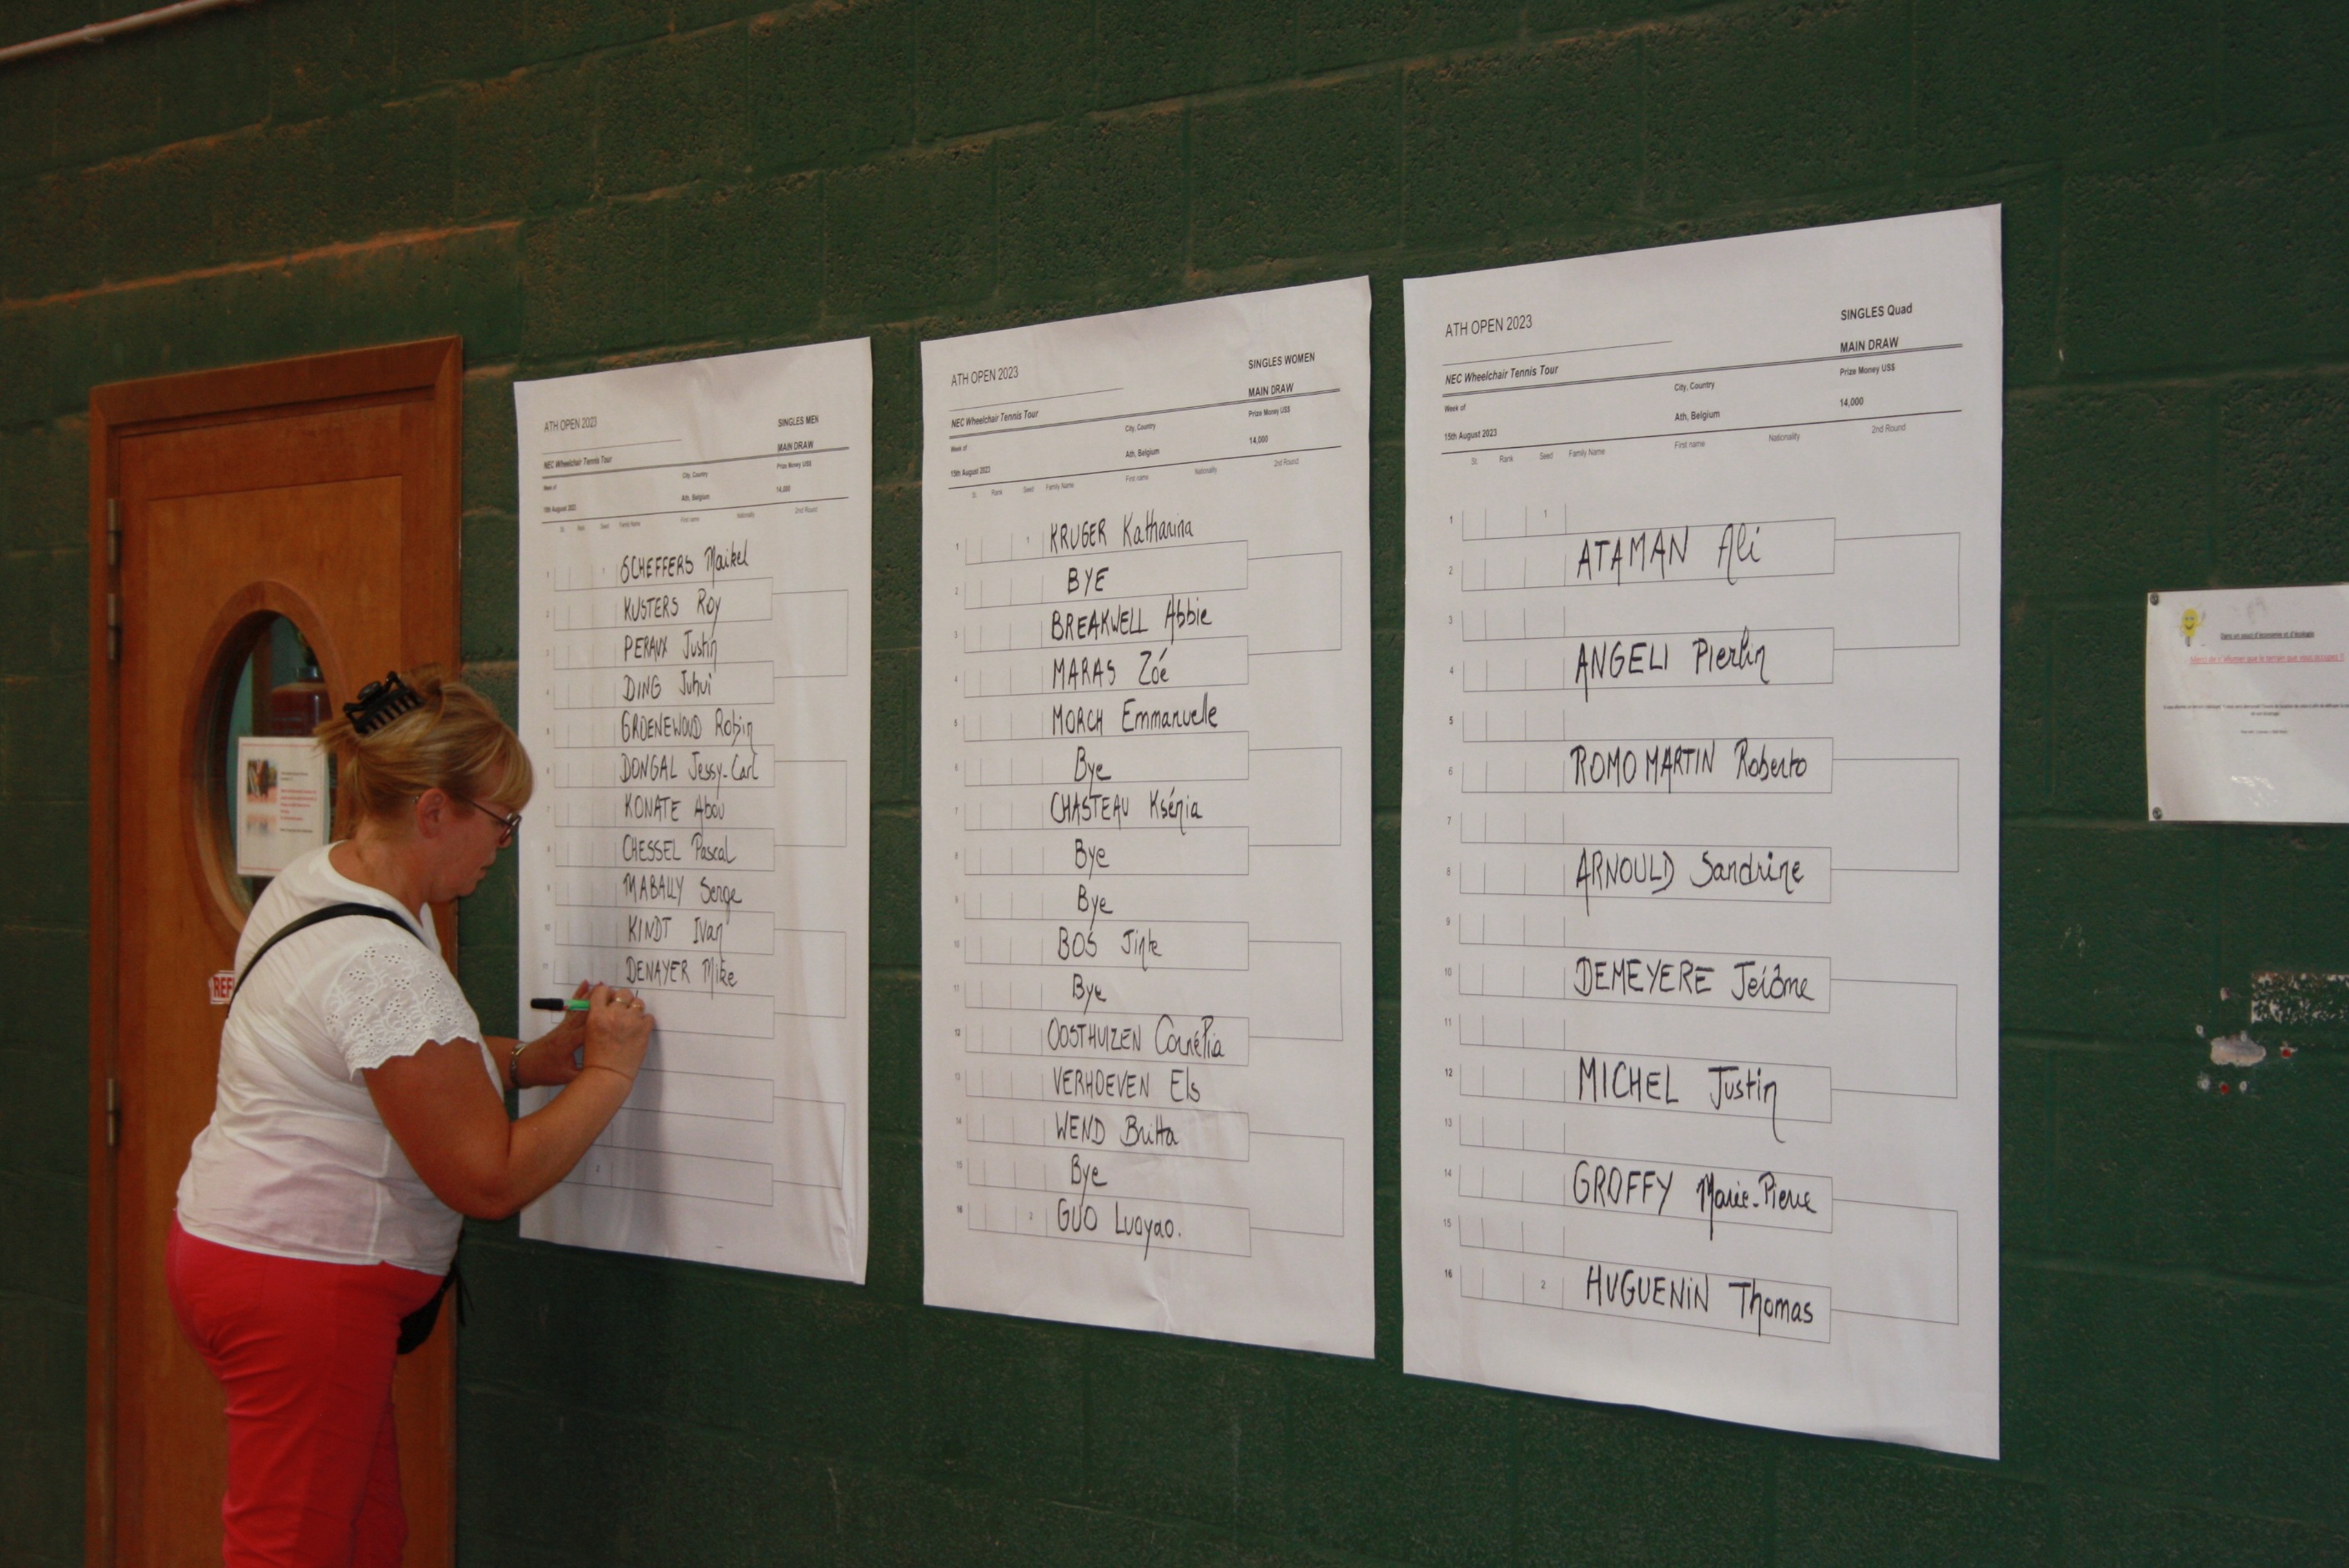 ATH OPEN 2023
SINGLES MEN
MAIN DRAW
NEC Wheelchair Tennis Tour
City, Country
Prize Money US$
Week of
Ath, Belgium
14,000
15th August 2023
St. Rank Seed Family Name First name Nationality 2nd Round
1 1 SCHEFFERS Maikel
2 KUSTERS Roy
3 PERAUX Justin
4 DING Juhui
5 GROENEWOUD Robin
6 DONGAL Jessy-Carl
7 KONATE Abou
8 CHESSEL Pascal
9 MABALLY Serge
10 KINDT Ivan
11 DENAYER Mike
2
ATH OPEN 2023
SINGLES WOMEN
MAIN DRAW
NEC Wheelchair Tennis Tour
City, Country
Prize Money US$
Week of
Ath, Belgium
14,000
15th August 2023
St. Rank Seed Family Name First name Nationality 2nd Round
1 1 KRUGER Katharina
2 BYE
3 BREAKWELL Abbie
4 MARAS Zóe
5 MORCH Emmanuelle
6 Bye
7 CHASTEAU Ksénia
8 Bye
9 Bye
10 BOS Jinte
11 Bye
12 OOSTHUIZEN Cornélia
13 VERHOEVEN Els
14 WEND Britta
15 Bye
16 2 GUO Luoyao.
ATH OPEN 2023
SINGLES Quad
MAIN DRAW
NEC Wheelchair Tennis Tour
City, Country
Prize Money US$
Week of
Ath, Belgium
14,000
15th August 2023
St. Rank Seed Family Name First name Nationality 2nd Round
1 1
2 ATAMAN Ali
3
4 ANGELI Pierlin
5
6 ROMO MARTIN Roberto
7
8 ARNOULD Sandrine
9
10 DEMEYERE Jérôme
11
12 MICHEL Justin
13
14 GROFFY Marie-Pierre
15
16 2 HUGUENIN Thomas
Dans un souci d'économie et d'écologie
Merci de n'allumer que le terrain que vous occupez !!
REF